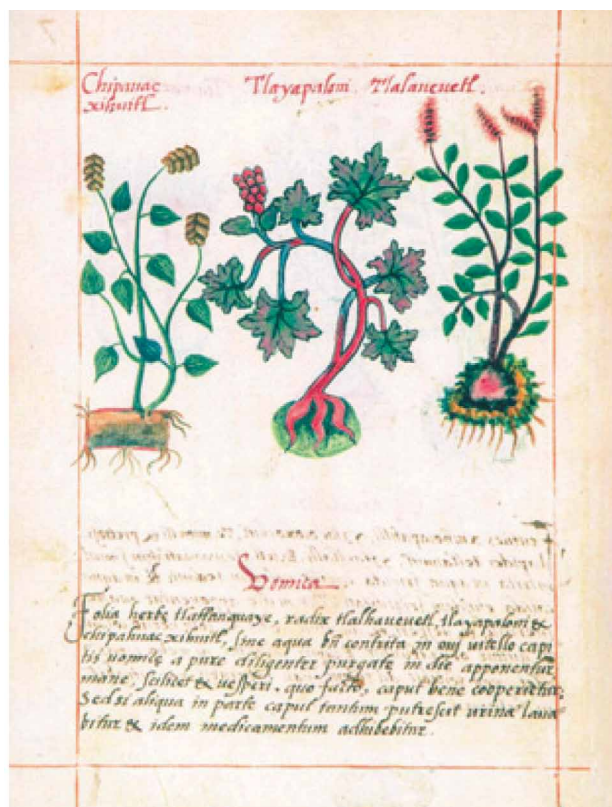 Chipauac Tlayapaloni. Tlalaueuetl.
xihuitl.
Vomica
Folia herbę tlatlanquaye, radix tlalhaueuetl, tlayapaloni &
chipahuac xihuitl, sine aqua bñ contrita in oui uitello capi
tis uomicę a pure diligenter purgatę in die apponentur
mane, scilicet & uesperi, quo facto, caput bene cooperietur.
Sed si aliqua in parte caput tantum putrescit urina laua
bitur & idem medicamentum adhibebitur.